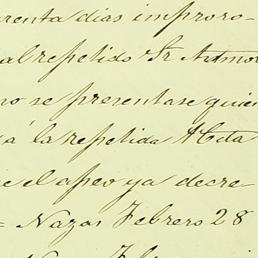 renta dias imporo-
al repetido Sr. Antmo
no se presentase quien
á la repetida Acta
e el apeo ya decre-
= Nazas Febrero 28